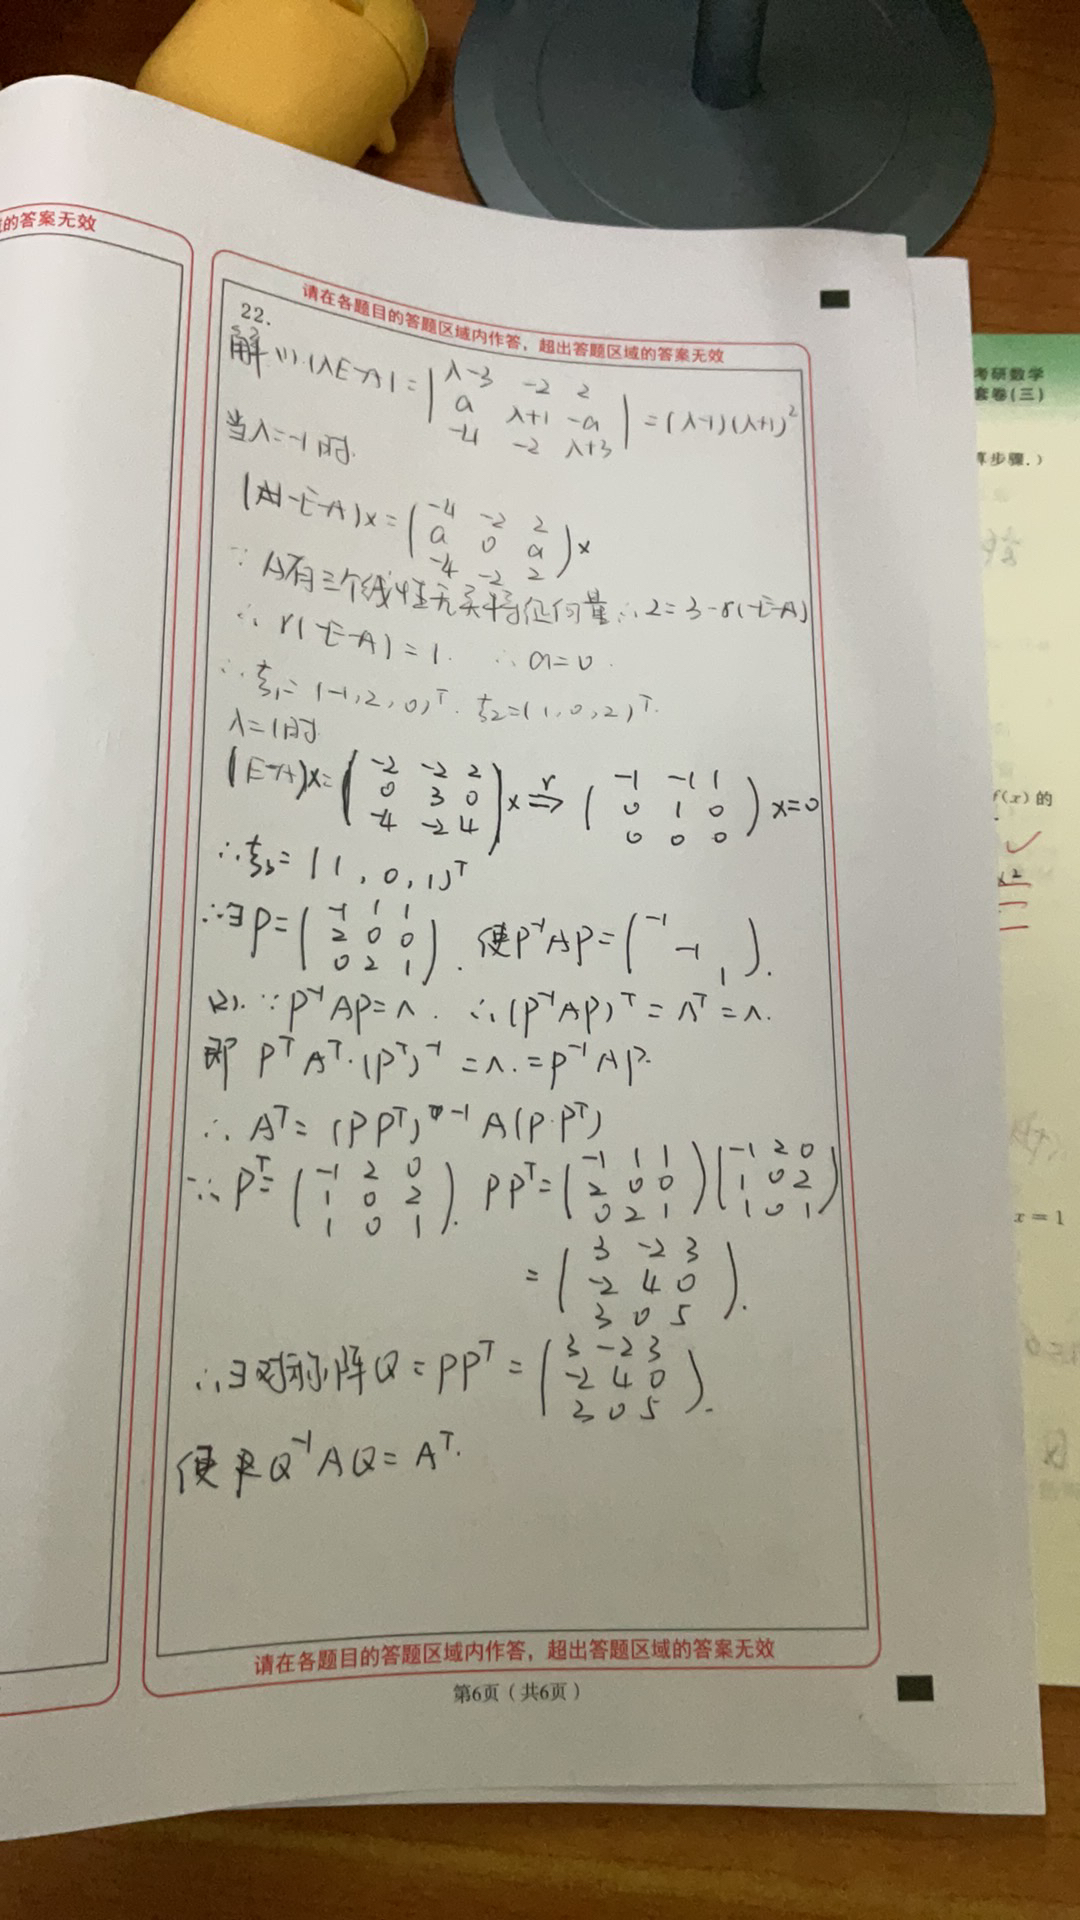 的答案无效
请在各题目的答题区域内作答，超出答题区域的答案无效
22.
解 (1). |λE-A| = | λ-3 -2 2
a λ+1 -a
-4 -2 λ+3 | = (λ-1)(λ+1)²
当λ=-1时.
(-E-A)x = ( -4 -2 2
a 0 a
-4 -2 2 ) x
∵ A有三个线性无关特征向量 ∴ 2=3-r(-E-A)
∴ r(-E-A) = 1. ∴ a=0.
∴ ξ₁= (-1, 2, 0)ᵀ. ξ₂=(1, 0, 2)ᵀ.
λ=1时.
(E-A)x= ( -2 -2 2
0 3 0
-4 -2 4 ) x ⇒ʳ ( -1 -1 1
0 1 0
0 0 0 ) x=0
∴ ξ₃= (1, 0, 1)ᵀ
∴∃ P= ( -1 1 1
2 0 0
0 2 1 ). 使P⁻¹AP= ( -1
-1
1 ).
(2). ∵ P⁻¹AP=Λ. ∴ (P⁻¹AP)ᵀ = Λᵀ = Λ.
即 Pᵀ Aᵀ·(Pᵀ)⁻¹ = Λ. = P⁻¹AP.
∴ Aᵀ= (PPᵀ)⁻¹ A(P·Pᵀ)
∵ Pᵀ= ( -1 2 0
1 0 2
1 0 1 ). PPᵀ= ( -1 1 1
2 0 0
0 2 1 ) ( -1 2 0
1 0 2
1 0 1 )
= ( 3 -2 3
-2 4 0
3 0 5 ).
∴∃对称阵Q = PPᵀ = ( 3 -2 3
-2 4 0
3 0 5 ).
使 Q⁻¹AQ= Aᵀ.
请在各题目的答题区域内作答，超出答题区域的答案无效
第6页（共6页）
考研数学
套卷(三)
算步骤.）
f(x) 的
x = 1